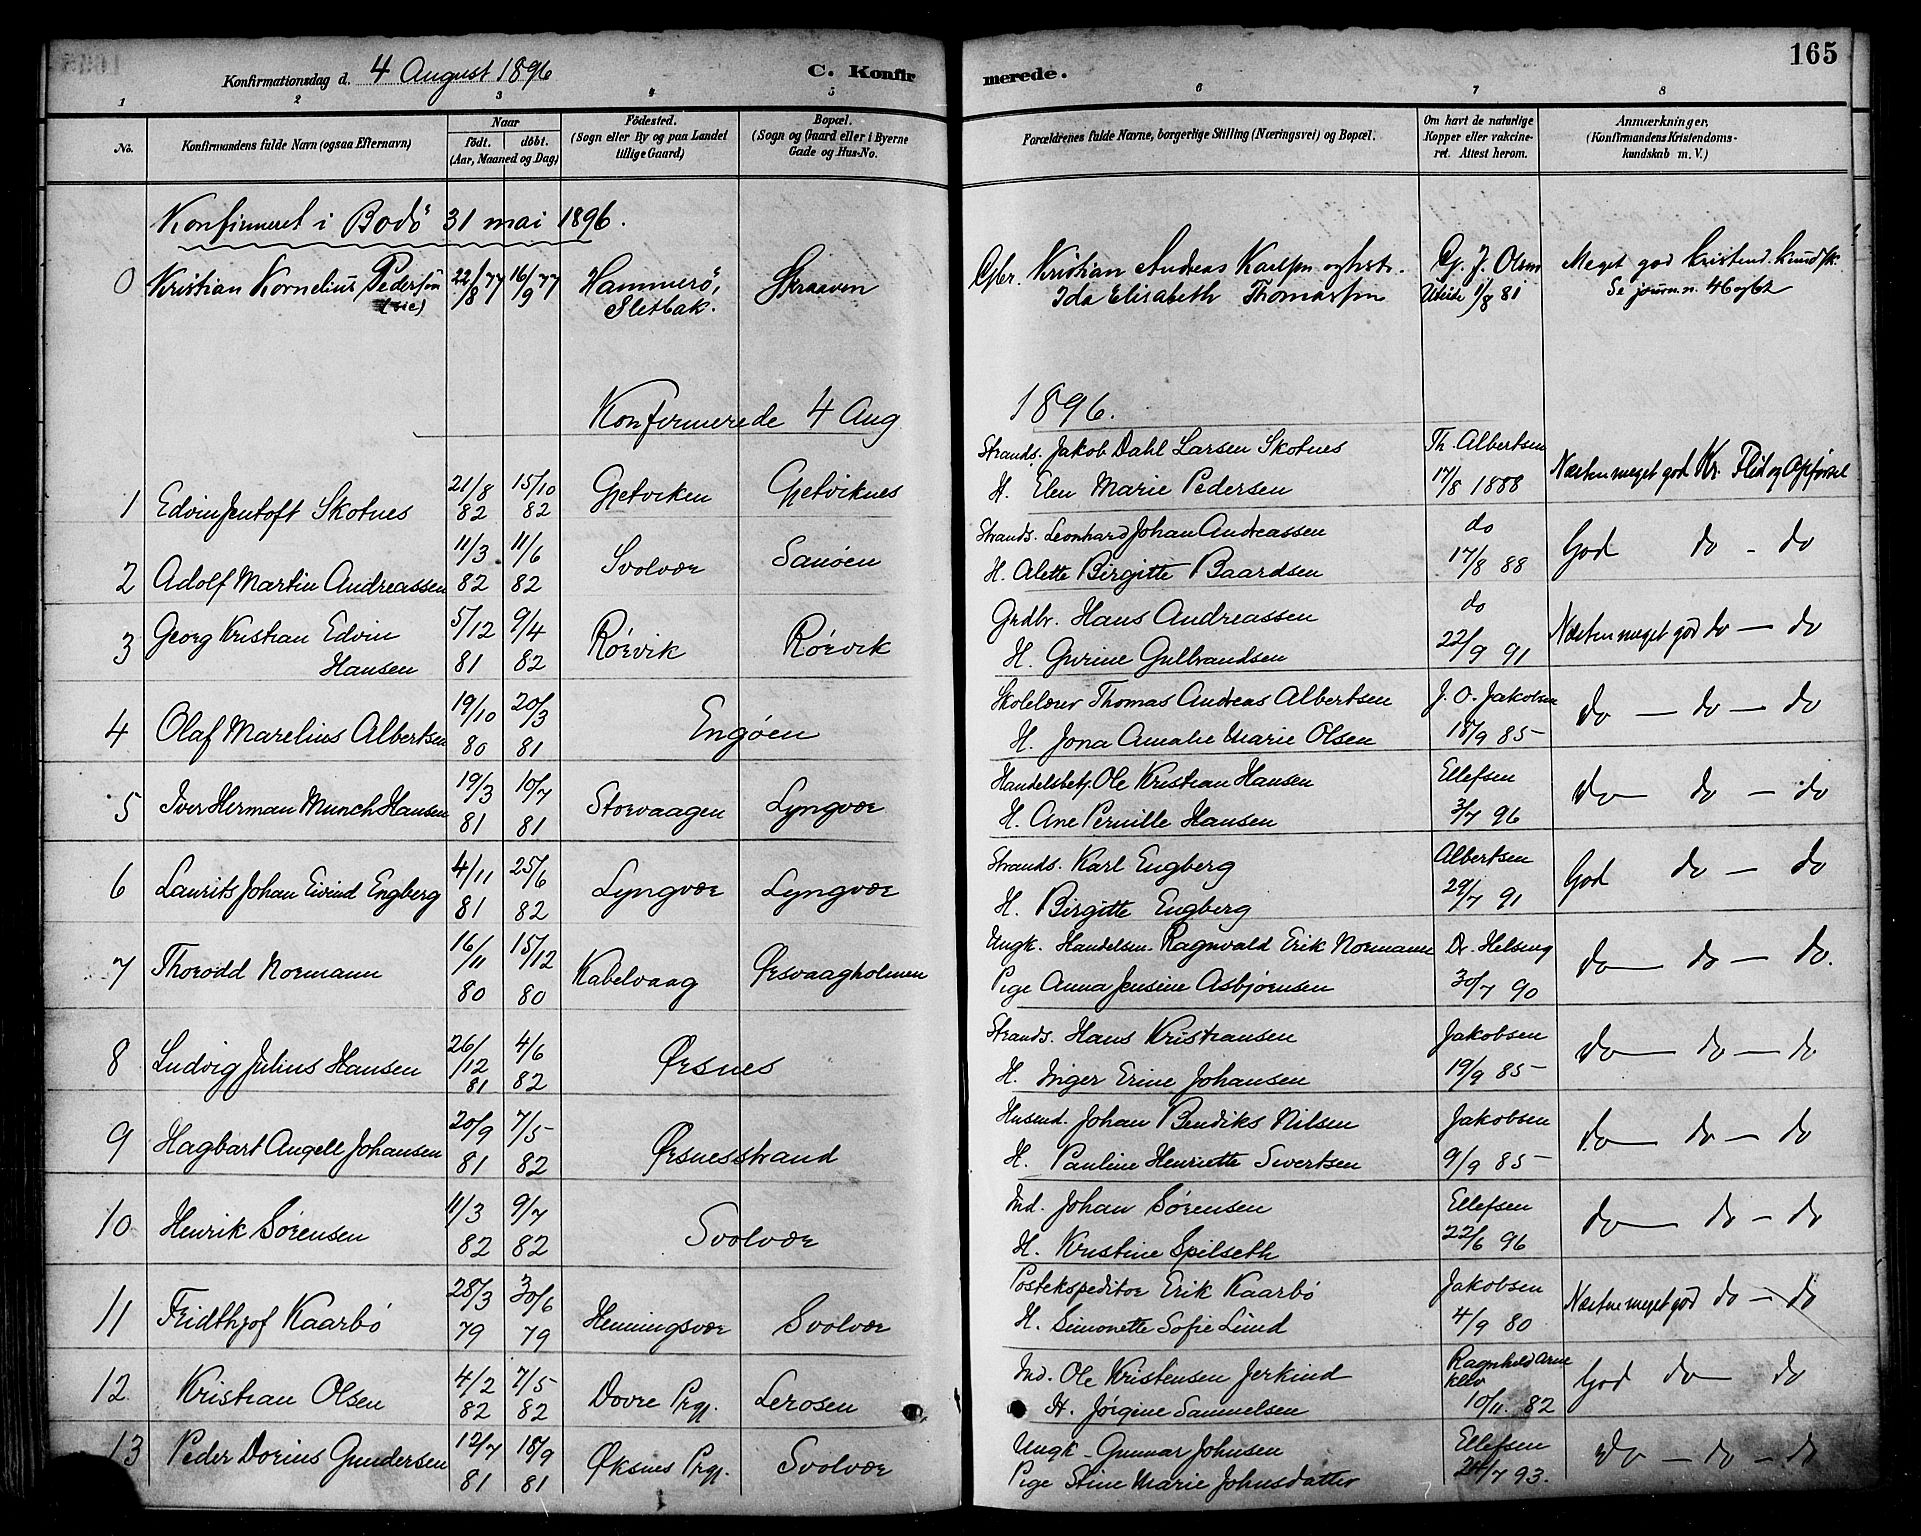 165
Konfirmationsdag d. 4 August 1896 C. Konfirmerede.
1 2 3 4 5 6 7 8
No. Konfirmandens fulde Navn (ogsaa Efternavn) Naar født. døbt. (Aar, Maaned og Dag) Fødested. (Sogn eller By og paa Landet tillige Gaard) Bopæl. (Sogn og Gaard eller i Byerne Gade og Hus-No. Forældrenes fulde Navne, borgerlige Stilling (Næringsvei) og Bopæl. Om havt de naturlige Kopper eller vakcineret. Attest herom. Anmærkninger. (Konfirmandens Kristendomskundskab m. V.)
Konfirmeret i Bodö 31 mai 1896.
0 Kristian Kornelius Pedersön (sic) 22/8 77 16/9 77 Hammerö, Sletbak. Skraaven Gbr. Kristian Andreas Karlsen og hstr. Ida Elisabeth Thomassen G. J. Olsen 1/8 81 Meget god kristend. kundsk. Se journ. n. 46 og 62
Konfirmerede 4 Aug 1896.
1 Edvin Jentoft Skotnes 21/8 82 15/10 82 Gjetviken Gjetviknes Strands. Jakob Dahl Larsen Skotnes H. Elen Marie Pedersen Th. Albertsen 17/8 1888 Næsten meget god Kr. Flid og Opførsel
2 Adolf Martin Andreassen 11/3 82 11/6 82 Svolvær Sanöen Strands. Leonhard Johan Andreassen H. Alette Birgitte Baardsen do 17/8 88 God do - do
3 Georg Kristian Edvin Hansen 5/12 81 9/4 82 Rörvik Rörvik Grdbr. Hans Andreassen H. Gurine Gulbrandsen do 22/9 91 Næsten meget god do - do
4 Olaf Marelius Albertsen 19/10 80 20/3 81 Engöen Skolelærer Thomas Andreas Albertsen H. Jona Amalie Marie Olsen J. O. Jakobsen 18/9 85 do - do - do
5 Iver Herman Munch Hansen 19/3 81 10/7 81 Storvaagen Lyngvær Handelsbetj. Ole Kristian Hansen H. Ane Pernille Hansen Ellefsen 3/7 96 do - do - do
6 Laurits Johan Eivind Engberg 4/11 81 25/6 82 Lyngvær Lyngvær Strands. Karl Engberg H. Birgitte Engberg Albertsen 29/7 91 God do - do
7 Thorodd Normann 16/11 80 15/12 80 Kabelvaag Ørsvaagholmen Ungk. Handelsm. Ragnvald Erik Normann Pige Anna Jensine Asbjørnsen Dr. Helseng 30/7 90 do - do - do.
8 Ludvig Julius Hansen 26/12 81 4/6 82 Ørsnes Strands. Hans Kristiansen H. Inger Erine Johansen Jakobsen 19/9 85 do - do - do
9 Hagbart Angell Johansen 20/9 81 7/5 82 Ørsnesstrand Husmd. Johan Bendiks Nilsen H. Pauline Henriette Sivertsen Jakobsen 9/9 85 do - do - do
10 Henrik Sörensen 11/3 82 9/7 82 Svolvær Ind. Johan Sörensen H. Kristine Spilseth Ellefsen 22/6 96 do - do - do
11 Fridthjof Kaarbö 28/3 79 30/6 79 Henningsvær Svolvær Postekspeditør Erik Kaarbö H. Simonette Sofie Lund Jakobsen 4/9 80 Næsten meget god do - do
12 Kristian Olsen 4/2 82 7/5 82 Dovre Prgj. Lerosen Ind. Ole Kristensen Jerkind H. Jörgine Samuelsen Ragnhild Arne 10/11. 82 God do - do
13 Peder Dorius Gundersen 12/7 81 18/9 81 Øksnes Prgj. Svolvær Ungk. Gunnar Johnsen Pige Stine Marie Johnsdatter Ellefsen 24/7 93. do - do - do